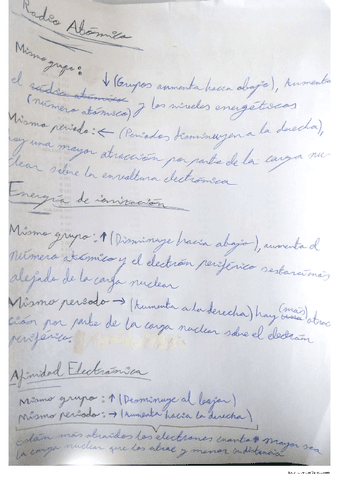 Radio Atómico
Mismo grupo:
↓ (Grupos aumenta hacia abajo), Aumenta
el radio atómico
(número atómico) y los niveles energéticos
Mismo periodo: ← (Periodos disminuyen a la derecha),
hay una mayor atracción por parte de la carga nu-
clear sobre la envoltura electrónica
Energía de ionización
Mismo grupo: ↑ (Disminuye hacia abajo), aumenta el
número atómico y el electrón periférico estará más
alejado de la carga nuclear
Mismo periodo → (Aumenta a la derecha) hay (más) atrac
ción por parte de la carga nuclear sobre el electrón
periférico.
Afinidad Electrónica
Mismo grupo: ↑ (Disminuye al bajar)
Mismo periodo: → (Aumenta hacia la derecha)
están más atraídos los electrones cuanto mayor sea
la carga nuclear que los atrae y menor